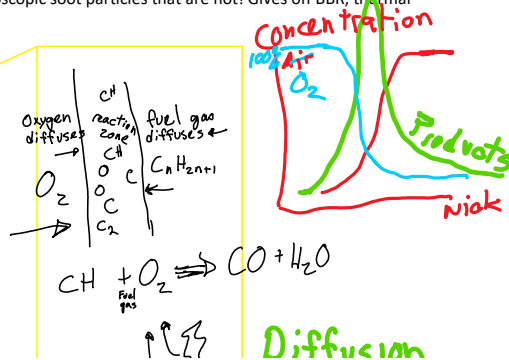 scopic soot particles that are not! Gives off BBR, thermal
Concentration
100% Air
O₂
Products
Nick
CH
Oxygen diffuses
reaction zone
fuel gas diffuses
CH
O
O
C
C
C₂
O₂
CnH2n+1
CH + O₂ ⇒ CO + H₂O
Fuel gas
Diffusion